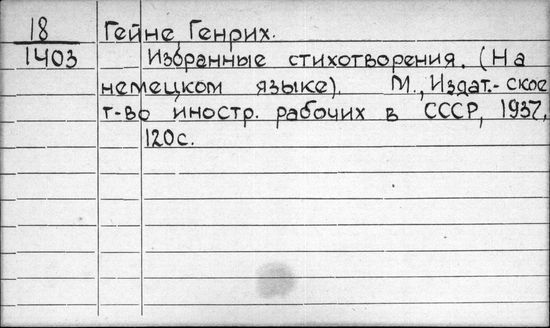 18
1403
Гейне, Генрих.
Избранные стихотворения. (На
немецком языке). М., Издат.-ское
т-во иностр. рабочих в СССР, 1937.
120с.